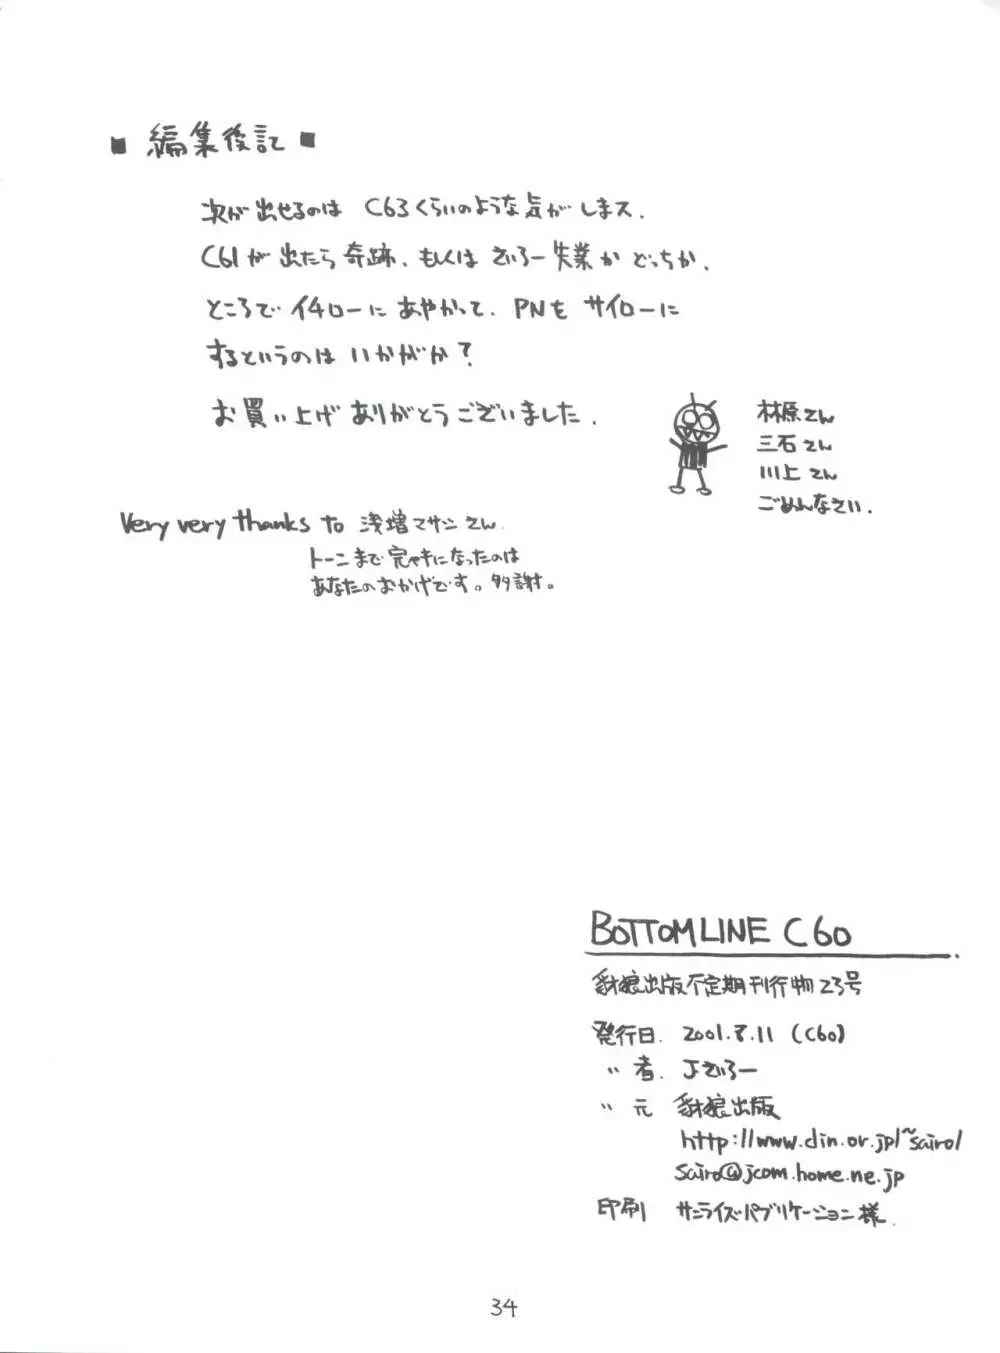 ■ 編集後記 ■
次が出せるのは C63くらいのような気がしまス.
C61が出たら奇跡、もしくは さいろー失業か どっちか.
ところで イチローに あやかって、PNを サイローに
するというのは いかがか?
お買い上げ ありがとうございました.
林原さん
三石さん
川上さん
ごめんなさい.
Very very thanks to 浅増マサシさん.
トーンまで完ペキになったのは
あなたのおかげです。多謝。
BOTTOMLINE C60
豺狼出版不定期刊行物23号
発行日. 2001.8.11 (C60)
〃 者. Jさいろー
〃 元 豺狼出版
http://www.din.or.jp/~sairo/
sairo@jcom.home.ne.jp
印刷 サンライズパブリケーション様.
34